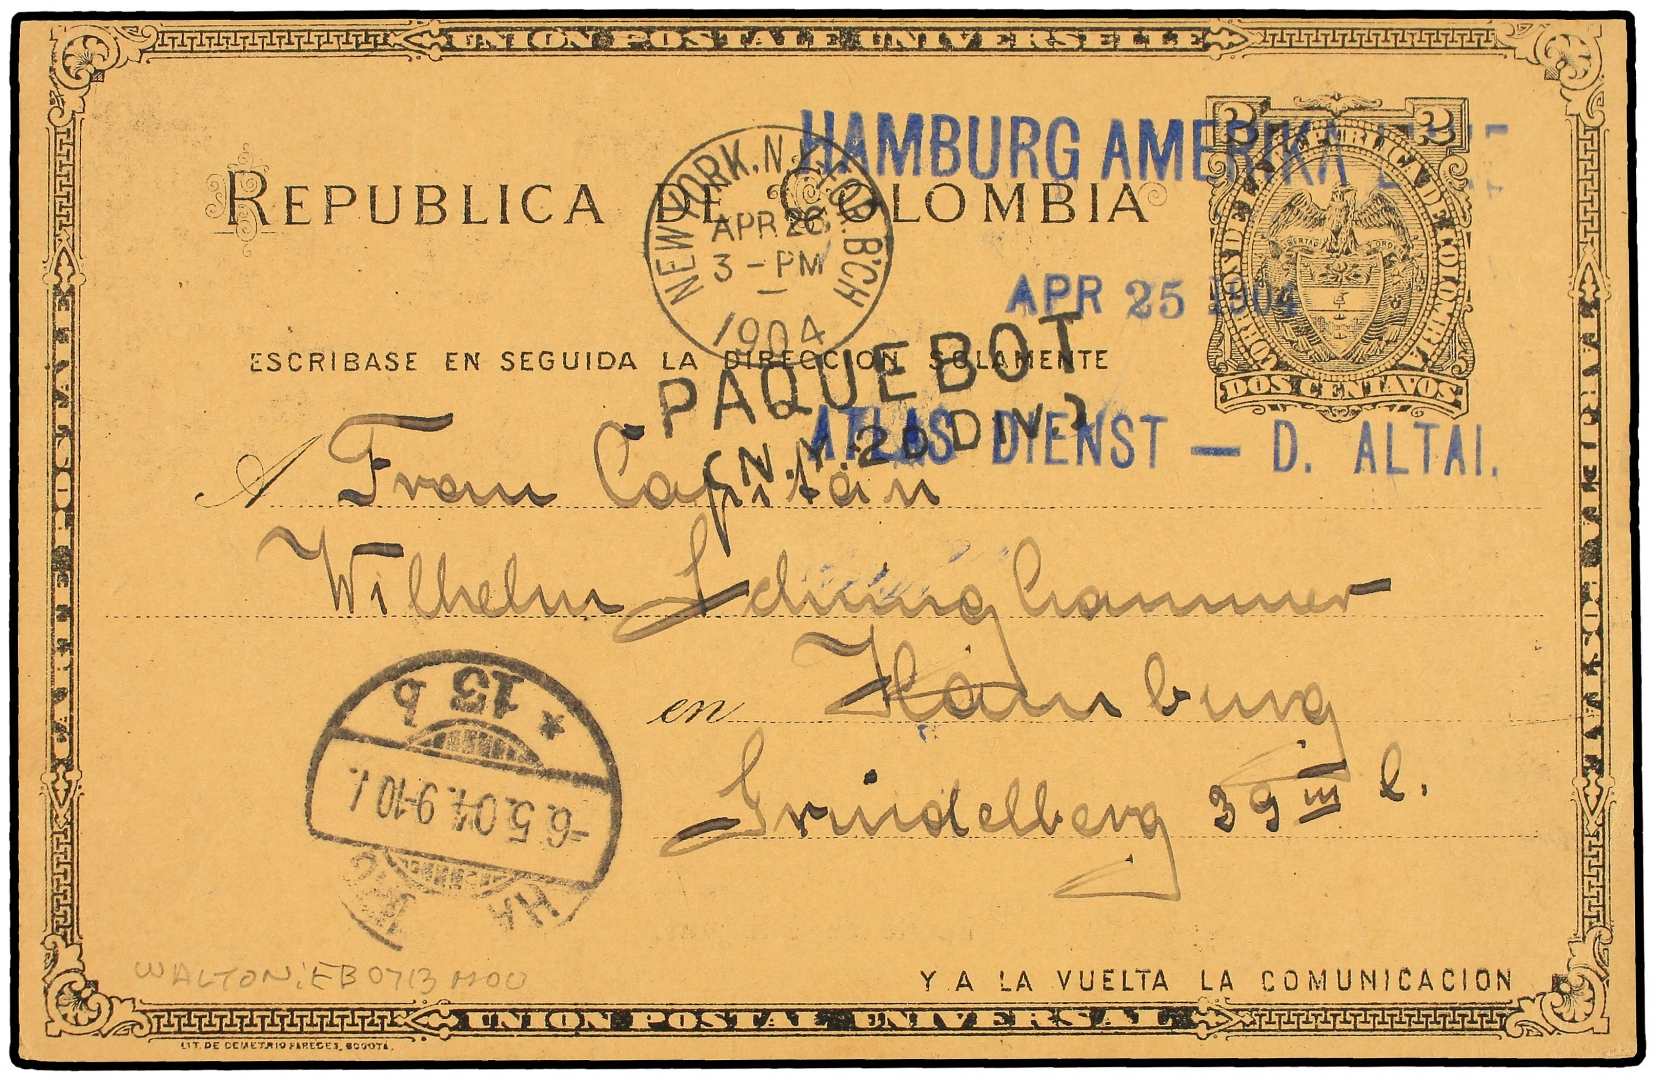 UNION POSTALE UNIVERSELLE
HAMBURG AMERIKA LINIE
2 2
REPUBLICA DE COLOMBIA
CORREOS DE LA REPUBLICA DE COLOMBIA
LIBERTAD Y ORDEN
NEW YORK, N.Y. FOR. B'CH
APR 26
3 - PM
1904
APR 25 1904
DOS CENTAVOS
ESCRIBASE EN SEGUIDA LA DIRECCION SOLAMENTE
PAQUEBOT
(N.Y. 2D DIV.)
ATLAS DIENST — D. ALTAI.
A Frau Capitän
Wilhelm Schunghammer
en Hamburg
Grindelberg 39 III l.
* 13 b
-6.5.04. 9-10 V.
HAMBURG
WALTON: EB0713 MOU
Y A LA VUELTA LA COMUNICACION
UNION POSTAL UNIVERSAL
LIT. DE DEMETRIO PAREDES, BOGOTA.